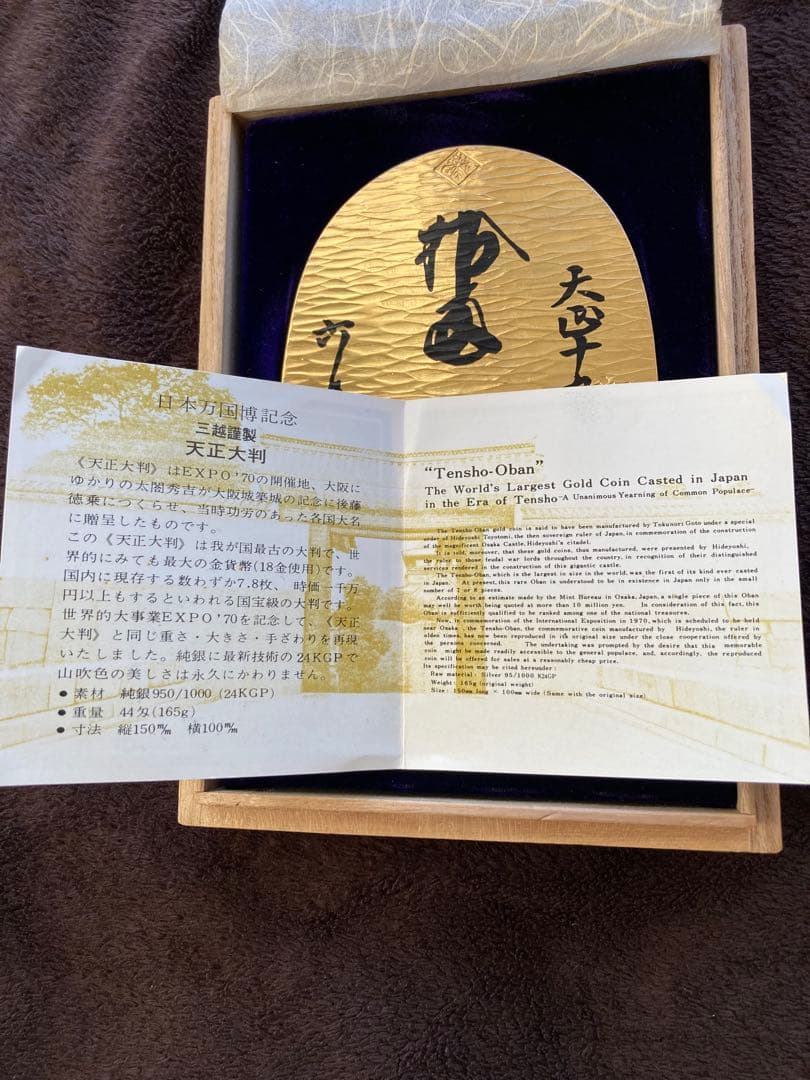 天正十九
六
日本万国博記念
三越謹製
天正大判
《天正大判》はEXPO'70の開催地、大阪に
ゆかりの太閤秀吉が大阪城築城の記念に後藤
徳乗につくらせ、当時功労のあった各国大名
に贈呈したものです。
この《天正大判》は我が国最古の大判で、世
界的にみても最大の金貨幣(18金使用)です。
国内に現存する数わずか7.8枚、時価一千万
円以上もするといわれる国宝級の大判です。
世界的大事業EXPO'70を記念して、《天正
大判》と同じ重さ・大きさ・手ざわりを再現
いたしました。純銀に最新技術の24KGPで
山吹色の美しさは永久にかわりません。
● 素材 純銀950/1000 (24KGP)
● 重量 44匁(165g)
● 寸法 縦150㎜ 横100㎜
“Tensho-Oban”
The World's Largest Gold Coin Casted in Japan
in the Era of Tensho -A Unanimous Yearning of Common Populace-
The Tensho-Oban gold coin is said to have been manufactured by Tokunori Goto under a special
order of Hideyoshi Toyotomi, the then sovereign ruler of Japan, in commemoration of the construction
of the magnificent Osaka Castle, Hideyoshi's citadel.
It is told, moreover, that these gold coins, thus manufactured, were presented by Hideyoshi,
the ruler to those feudal war lords throughout the country, in recognition of their distinguished
services rendered in the construction of this gigantic castle.
The Tensho-Oban, which is the largest in size in the world, was the first of its kind ever casted
in Japan. At present, this rare Oban is understood to be in existence in Japan only in the small
number of 7 or 8 pieces.
According to an estimate made by the Mint Bureau in Osaka, Japan, a single piece of this Oban
may well be worth being quoted at more than 10 million yen. In consideration of this fact, this
Oban is sufficiently qualified to be ranked among one of the national treasures.
Now, in commemoration of the International Exposition in 1970, which is scheduled to be held
near Osaka, the Tensho-Oban, the commemorative coin manufactured by Hideyoshi, the ruler in
olden times, has now been reproduced in its original size under the close cooperation offered by
the persons concerned. The undertaking was prompted by the desire that this memorable
coin might be made readily accessible to the general populace, and, accordingly, the reproduced
coin will be offered for sales at a reasonably cheap price.
Its specification may be cited hereunder:
· Raw material: Silver 95/1000 K24GP
· Weight: 165g (original weight)
· Size: 150mm long × 100mm wide (Same with the original size)